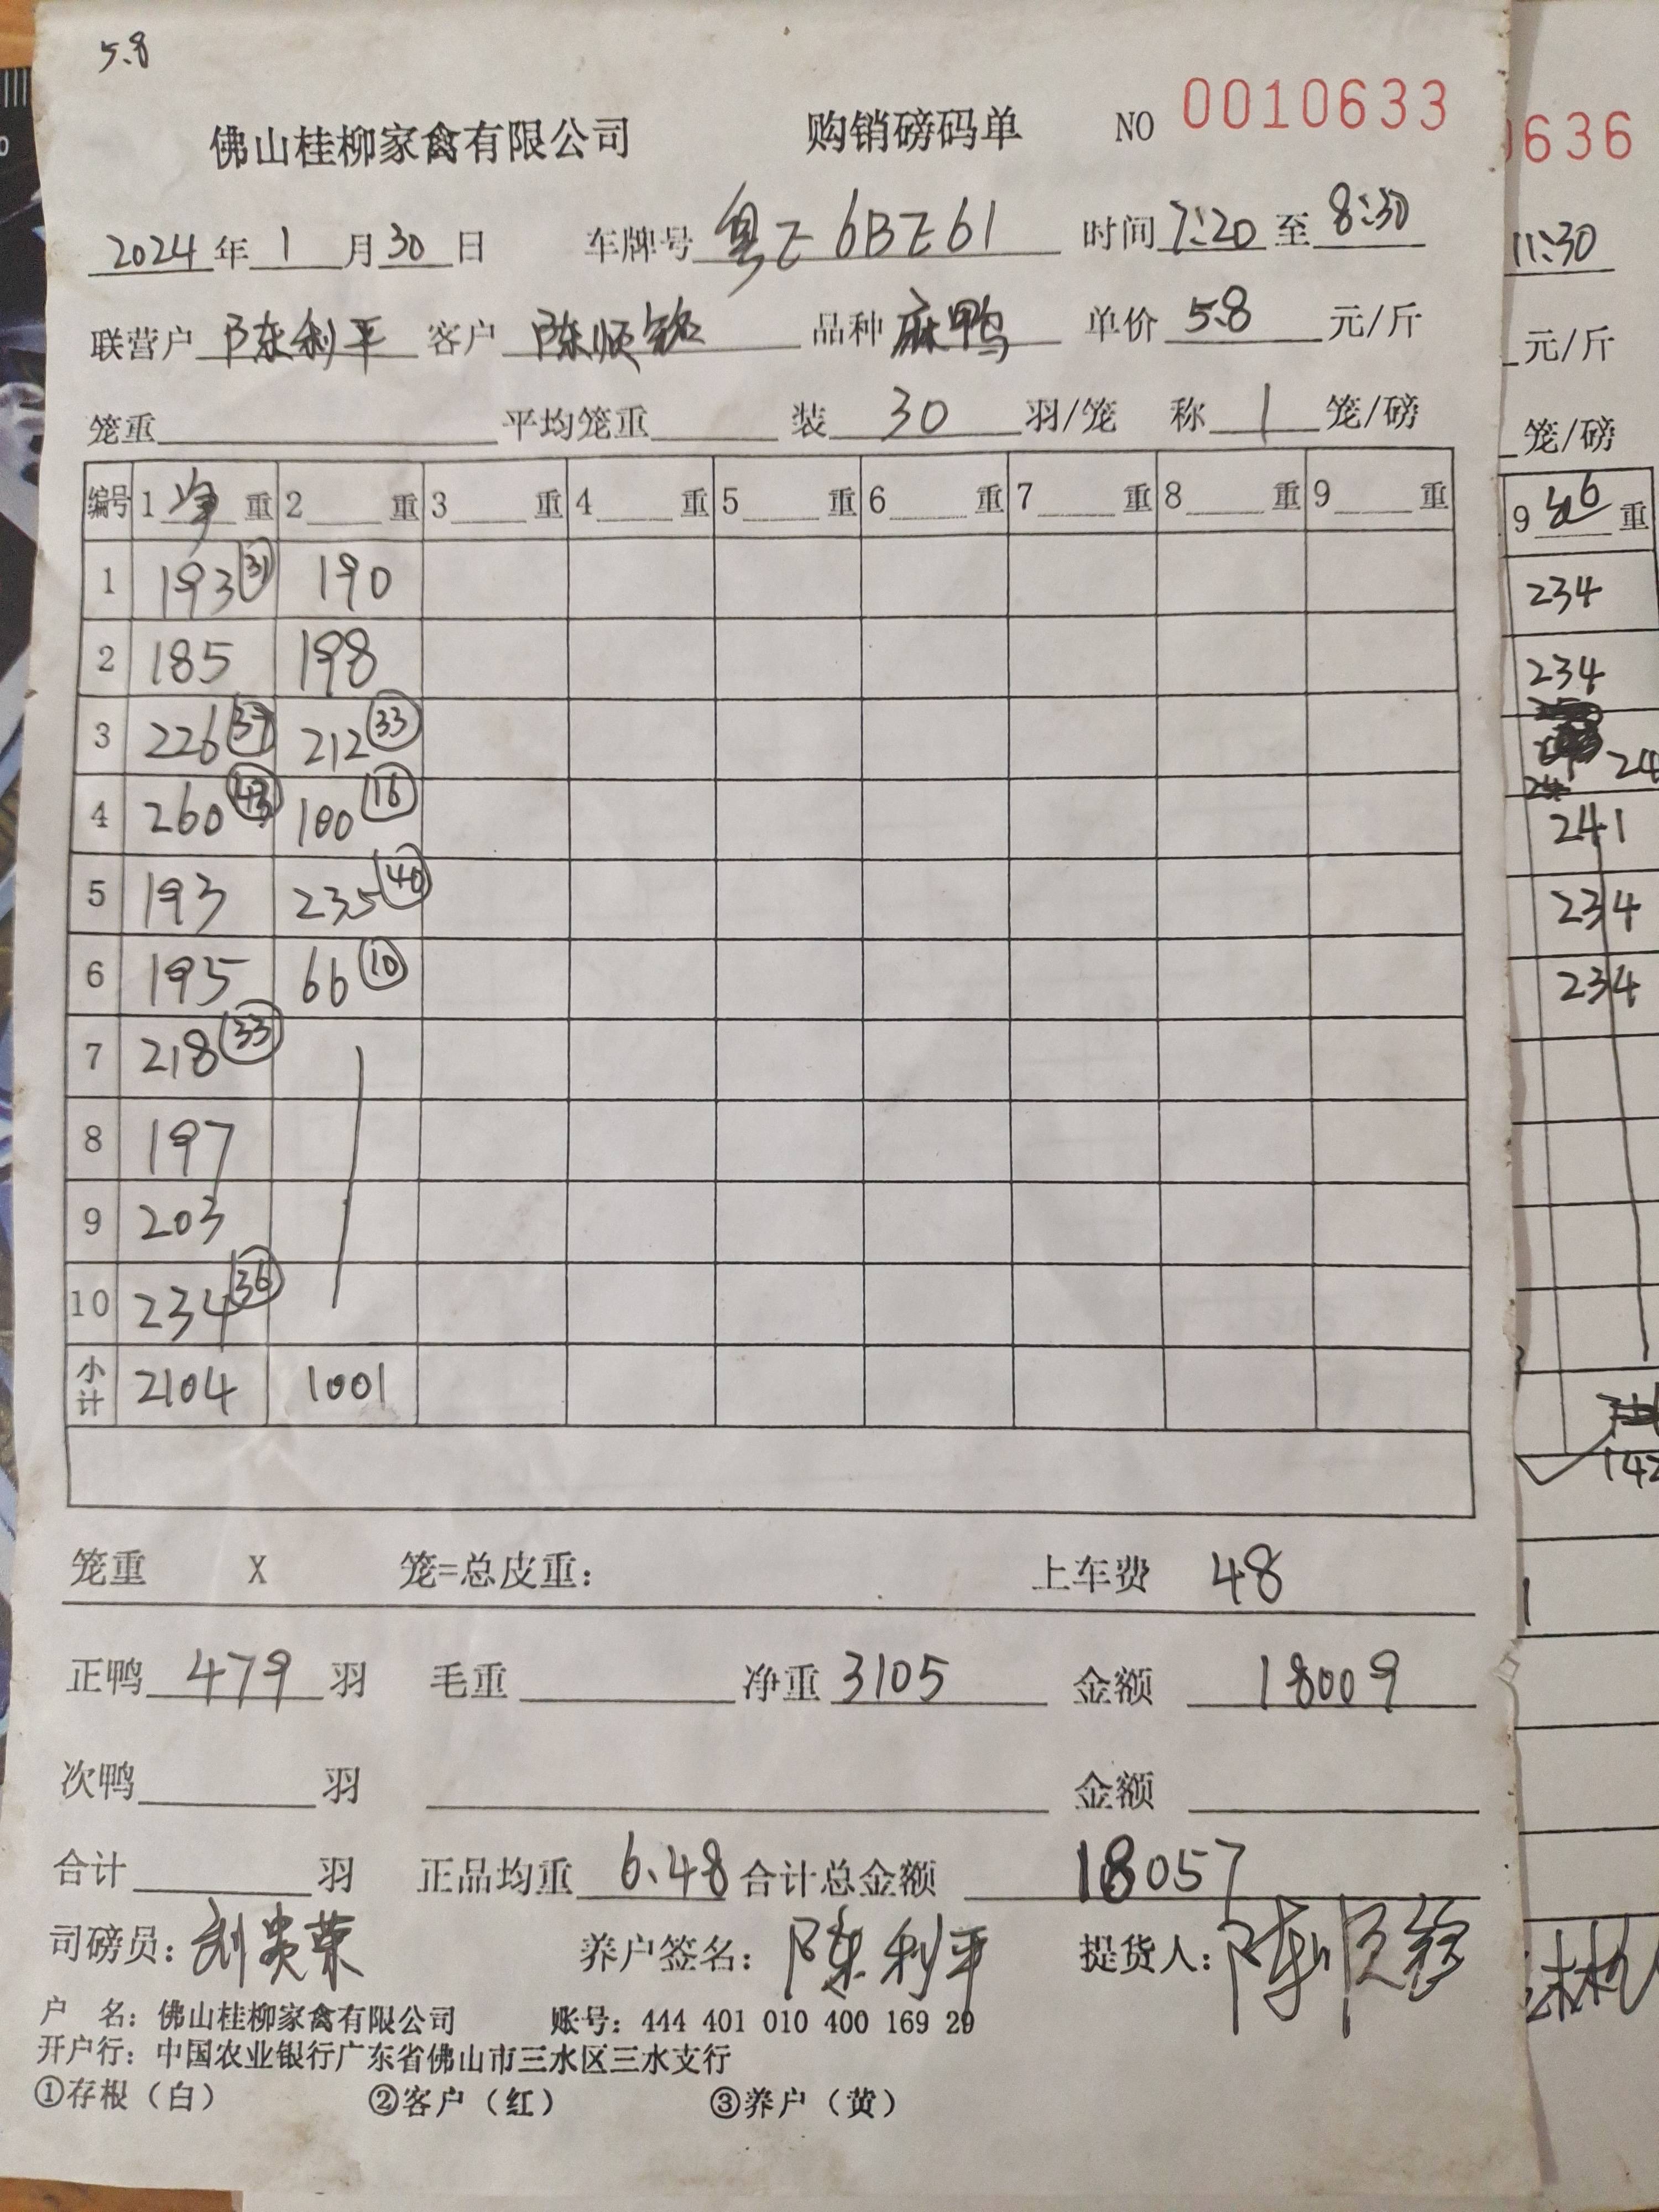 5.8
佛山桂柳家禽有限公司 购销磅码单 NO 0010633
2024年1月30日 车牌号 粤Z6BZ61 时间7:20至8:30
联营户 陈利平 客户 陈顺铭 品种 麻鸭 单价 5.8 元/斤
笼重 平均笼重 装 30 羽/笼 称 1 笼/磅
编号 1 净 重 2 重 3 重 4 重 5 重 6 重 7 重 8 重 9 重
1 193 31 190
2 185 198
3 226 37 212 33
4 260 43 100 16
5 193 235 40
6 195 66 10
7 218 33
8 197
9 203
10 234 36
小计 2104 1001
笼重 X 笼=总皮重： 上车费 48
正鸭 479 羽 毛重 净重 3105 金额 18009
次鸭 羽 金额
合计 羽 正品均重 6.48 合计总金额 18057
司磅员：刘贵荣 养户签名：陈利平 提货人：陈顺铭
户 名：佛山桂柳家禽有限公司 账号：444 401 010 400 169 29
开户行：中国农业银行广东省佛山市三水区三水支行
①存根（白） ②客户（红） ③养户（黄）
636
11:30
元/斤
笼/磅
9 重
234
234
24
241
234
234